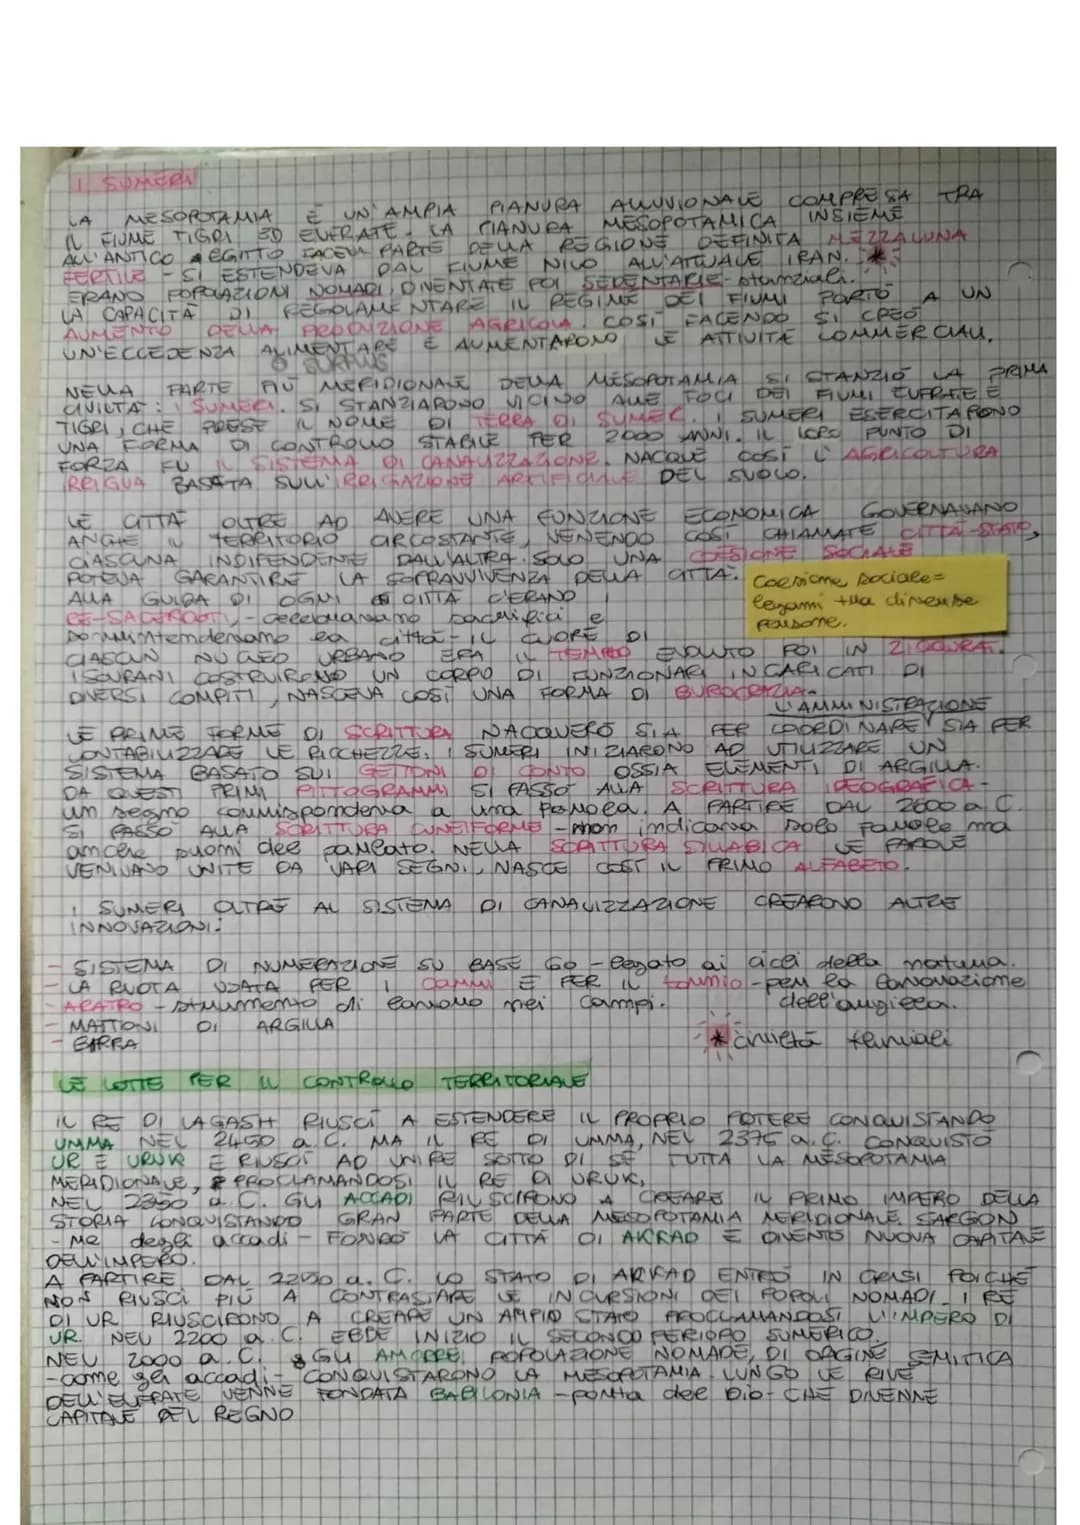 I SUMERI
LA MESOPOTAMIA È UN'AMPIA PIANURA ALLUVIONALE COMPRESA TRA
IL FIUME TIGRI ED EUFRATE. LA PIANURA MESOPOTAMICA INSIEME
ALL'ANTICO EGITTO FACEVA PARTE DELLA REGIONE DEFINITA MEZZALUNA
FERTILE - SI ESTENDEVA DAL FIUME NILO ALL'ATTUALE IRAN. *
ERANO POPOLAZIONI NOMADI, DIVENTATE POI SEDENTARIE - stanziali.
LA CAPACITÀ DI REGOLAMENTARE IL REGIME DEI FIUMI PORTÒ A UN
AUMENTO DELLA PRODUZIONE AGRICOLA. COSÌ FACENDO SI CREÒ
UN'ECCEDENZA ALIMENTARE E AUMENTARONO LE ATTIVITÀ COMMERCIALI.
O SURPLUS
NELLA PARTE PIÙ MERIDIONALE DELLA MESOPOTAMIA SI STANZIÒ LA PRIMA
CIVILTÀ: I SUMERI. SI STANZIARONO VICINO ALLE FOCI DEI FIUMI EUFRATE E
TIGRI, CHE PRESE IL NOME DI TERRA DI SUMER. I SUMERI ESERCITARONO
UNA FORMA DI CONTROLLO STABILE PER 2000 ANNI. IL LORO PUNTO DI
FORZA FU IL SISTEMA DI CANALIZZAZIONE. NACQUE COSÌ L'AGRICOLTURA
IRRIGUA BASATA SULL'IRRIGAZIONE ARTIFICIALE DEL SUOLO.
LE CITTÀ OLTRE AD AVERE UNA FUNZIONE ECONOMICA GOVERNAVANO
ANCHE IL TERRITORIO CIRCOSTANTE, VENENDO COSÌ CHIAMATE CITTÀ-STATO,
CIASCUNA INDIPENDENTE DALL'ALTRA. SOLO UNA COESIONE SOCIALE
POTEVA GARANTIRE LA SOPRAVVIVENZA DELLA CITTÀ.
Coesione sociale=
legami tra diverse
persone.
ALLA GUIDA DI OGNI CITTÀ C'ERANO I
RE-SACERDOTI, - celebravano sacrifici e
sovrintendevano la città - IL CUORE DI
CIASCUN NUCLEO URBANO ERA IL TEMPIO EVOLUTO POI IN ZIGGURAT.
I SOVRANI COSTRUIRONO UN CORPO DI FUNZIONARI INCARICATI DI
DIVERSI COMPITI, NASCEVA COSÌ UNA FORMA DI BUROCRAZIA.
L'AMMINISTRAZIONE
LE PRIME FORME DI SCRITTURA NACQUERO SIA PER COORDINARE SIA PER
CONTABILIZZARE LE RICCHEZZE. I SUMERI INIZIARONO AD UTILIZZARE UN
SISTEMA BASATO SUI GETTONI DI CONTO OSSIA ELEMENTI DI ARGILLA.
DA QUESTI PRIMI PITTOGRAMMI SI PASSÒ ALLA SCRITTURA IDEOGRAFICA -
un segno corrispondeva a una parola. A PARTIRE DAL 2600 a.C.
SI PASSÒ ALLA SCRITTURA CUNEIFORME - non indicava solo parole ma
anche suoni del parlato. NELLA SCRITTURA SILLABICA LE PAROLE
VENIVANO UNITE DA VARI SEGNI, NASCE COSÌ IL PRIMO ALFABETO.
I SUMERI OLTRE AL SISTEMA DI CANALIZZAZIONE CREARONO ALTRE
INNOVAZIONI:
- SISTEMA DI NUMERAZIONE SU BASE 60 - legato ai cicli della natura.
- LA RUOTA USATA PER I CARRI E PER IL tornio - per la lavorazione
dell'argilla.
- ARATRO - strumento di lavoro nei campi.
- MATTONI DI ARGILLA
- BIRRA
* civiltà fluviali
LE LOTTE PER IL CONTROLLO TERRITORIALE
IL RE DI LAGASH RIUSCÌ A ESTENDERE IL PROPRIO POTERE CONQUISTANDO
UMMA NEL 2450 a.C. MA IL RE DI UMMA, NEL 2375 a.C. CONQUISTÒ
UR E URUK E RIUSCÌ AD UNIRE SOTTO DI SÉ TUTTA LA MESOPOTAMIA
MERIDIONALE, PROCLAMANDOSI IL RE DI URUK,
NEL 2350 a.C. GLI ACCADI RIUSCIRONO A CREARE IL PRIMO IMPERO DELLA
STORIA CONQUISTANDO GRAN PARTE DELLA MESOPOTAMIA MERIDIONALE. SARGON
- re degli accadi - FONDÒ LA CITTÀ DI AKKAD E DIVENTÒ NUOVA CAPITALE
DELL'IMPERO.
A PARTIRE DAL 2200 a.C. LO STATO DI AKKAD ENTRÒ IN CRISI POICHÉ
NON RIUSCÌ PIÙ A CONTRASTARE LE INCURSIONI DEI POPOLI NOMADI. I RE
DI UR RIUSCIRONO A CREARE UN AMPIO STATO PROCLAMANDOSI L'IMPERO DI
UR. NEL 2200 a.C. EBBE INIZIO IL SECONDO PERIODO SUMERICO.
NEL 2000 a.C. GLI AMORREI POPOLAZIONE NOMADE, DI ORIGINE SEMITICA
- come gli accadi - CONQUISTARONO LA MESOPOTAMIA. LUNGO LE RIVE
DELL'EUFRATE VENNE FONDATA BABILONIA - porta del Dio - CHE DIVENNE
CAPITALE DEL REGNO